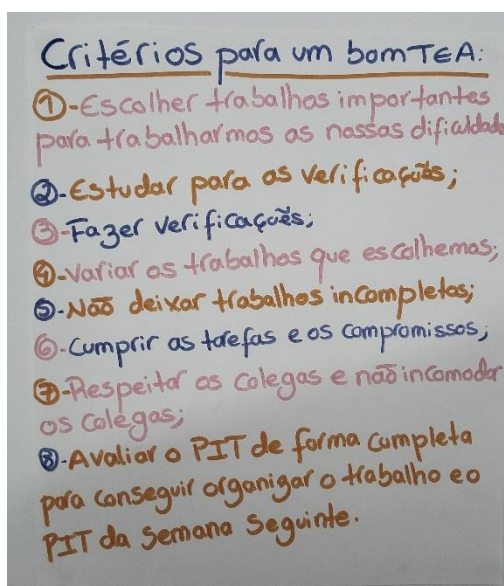 Critérios para um bom TEA:
①-Escolher trabalhos importantes
para trabalharmos as nossas dificuldade
②-Estudar para as verificações;
③-Fazer verificações;
④-Variar os trabalhos que escolhemos;
⑤-Não deixar trabalhos incompletos;
⑥-Cumprir as tarefas e os compromissos;
⑦-Respeitar os colegas e não incomodar
os colegas;
⑧-Avaliar o PIT de forma completa
para conseguir organizar o trabalho e o
PIT da semana seguinte.